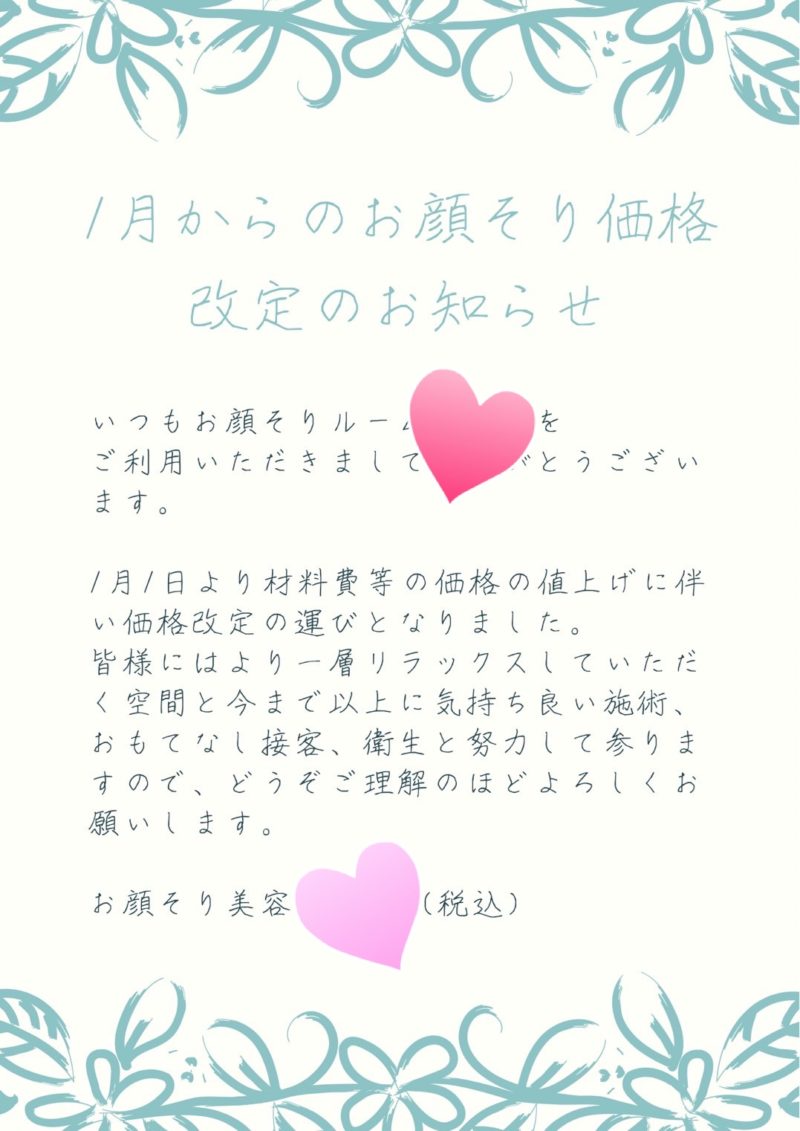 1月からのお顔そり価格
改定のお知らせ
いつもお顔そりルー を
ご利用いただきまして がとうござい
ます。
1月1日より材料費等の価格の値上げに伴
い価格改定の運びとなりました。
皆様にはより一層リラックスしていただ
く空間と今まで以上に気持ち良い施術、
おもてなし接客、衛生と努力して参りま
すので、どうぞご理解のほどよろしくお
願いします。
お顔そり美容 (税込)